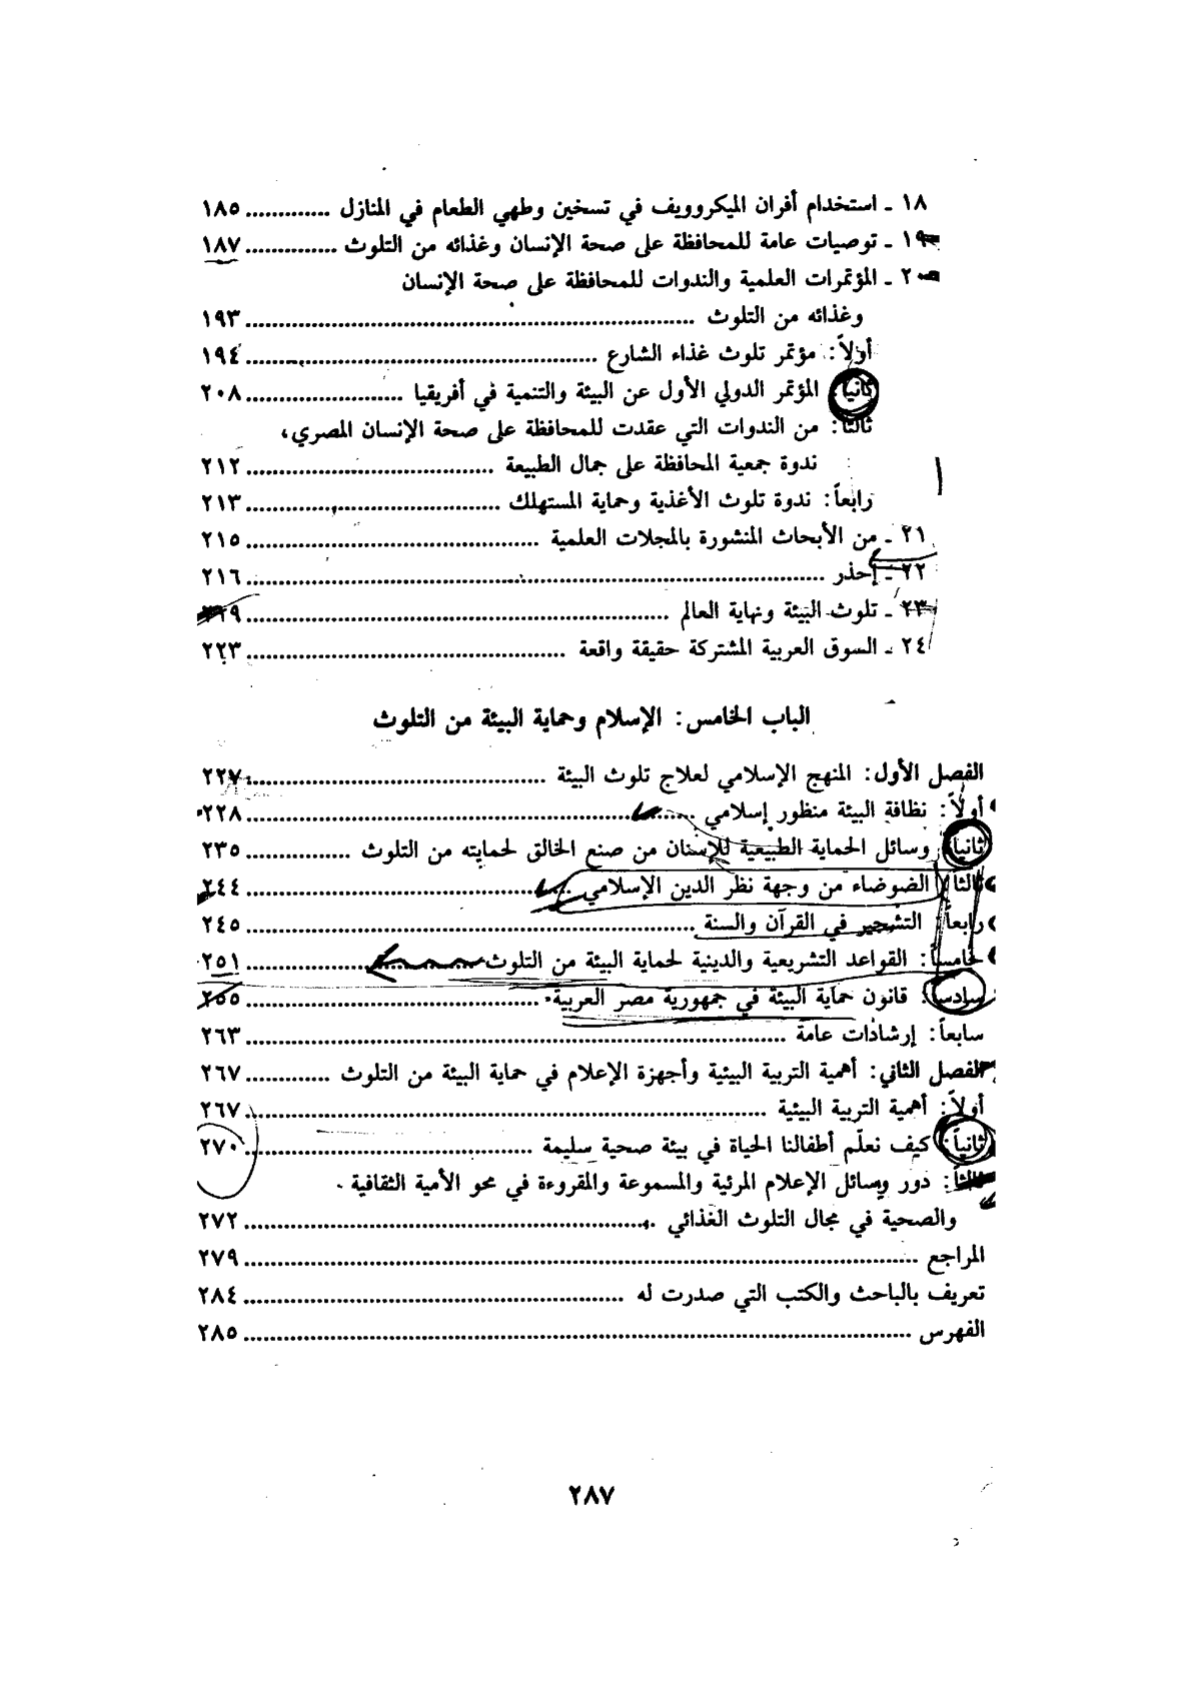 ١٨ ـ استخدام أفران الميكروويف في تسخين وطهي الطعام في المنازل ............. ١٨٥
١٩ ـ توصيات عامة للمحافظة على صحة الإنسان وغذائه من التلوث .............. ١٨٧
٢٠ ـ المؤتمرات العلمية والندوات للمحافظة على صحة الإنسان
وغذائه من التلوث .............. ١٩٣
أولاً: مؤتمر تلوث غذاء الشارع .............. ١٩٤
ثانياً: المؤتمر الدولي الأول عن البيئة والتنمية في أفريقيا .............. ٢٠٨
ثالثاً: من الندوات التي عقدت للمحافظة على صحة الإنسان المصري،
ندوة جمعية المحافظة على جمال الطبيعة .............. ٢١٢
رابعاً: ندوة تلوث الأغذية وحماية المستهلك .............. ٢١٣
٢١ ـ من الأبحاث المنشورة بالمجلات العلمية .............. ٢١٥
٢٢ ـ إحذر .............. ٢١٦
٢٣ ـ تلوث البيئة ونهاية العالم ..............
٢٤ ـ السوق العربية المشتركة حقيقة واقعة .............. ٢٢٣
الباب الخامس: الإسلام وحماية البيئة من التلوث
الفصل الأول: المنهج الإسلامي لعلاج تلوث البيئة .............. ٢٢٧
أولاً: نظافة البيئة منظور إسلامي .............. ٢٢٨
ثانياً: وسائل الحماية الطبيعية للإنسان من صنع الخالق لحمايته من التلوث .............. ٢٣٥
ثالثاً: الضوضاء من وجهة نظر الدين الإسلامي .............. ٢٤٤
رابعاً: التشجير في القرآن والسنة .............. ٢٤٥
خامساً: القواعد التشريعية والدينية لحماية البيئة من التلوث .............. ٢٥١
سادساً: قانون حماية البيئة في جمهورية مصر العربية .............. ٢٥٥
سابعاً: إرشادات عامة .............. ٢٦٣
الفصل الثاني: أهمية التربية البيئية وأجهزة الإعلام في حماية البيئة من التلوث ............. ٢٦٧
أولاً: أهمية التربية البيئية .............. ٢٦٧
ثانياً: كيف نعلّم أطفالنا الحياة في بيئة صحية سليمة .............. ٢٧٠
ثالثاً: دور وسائل الإعلام المرئية والمسموعة والمقروءة في محو الأمية الثقافية
والصحية في مجال التلوث الغذائي .............. ٢٧٢
المراجع .............. ٢٧٩
تعريف بالباحث والكتب التي صدرت له .............. ٢٨٤
الفهرس .............. ٢٨٥
٢٨٧